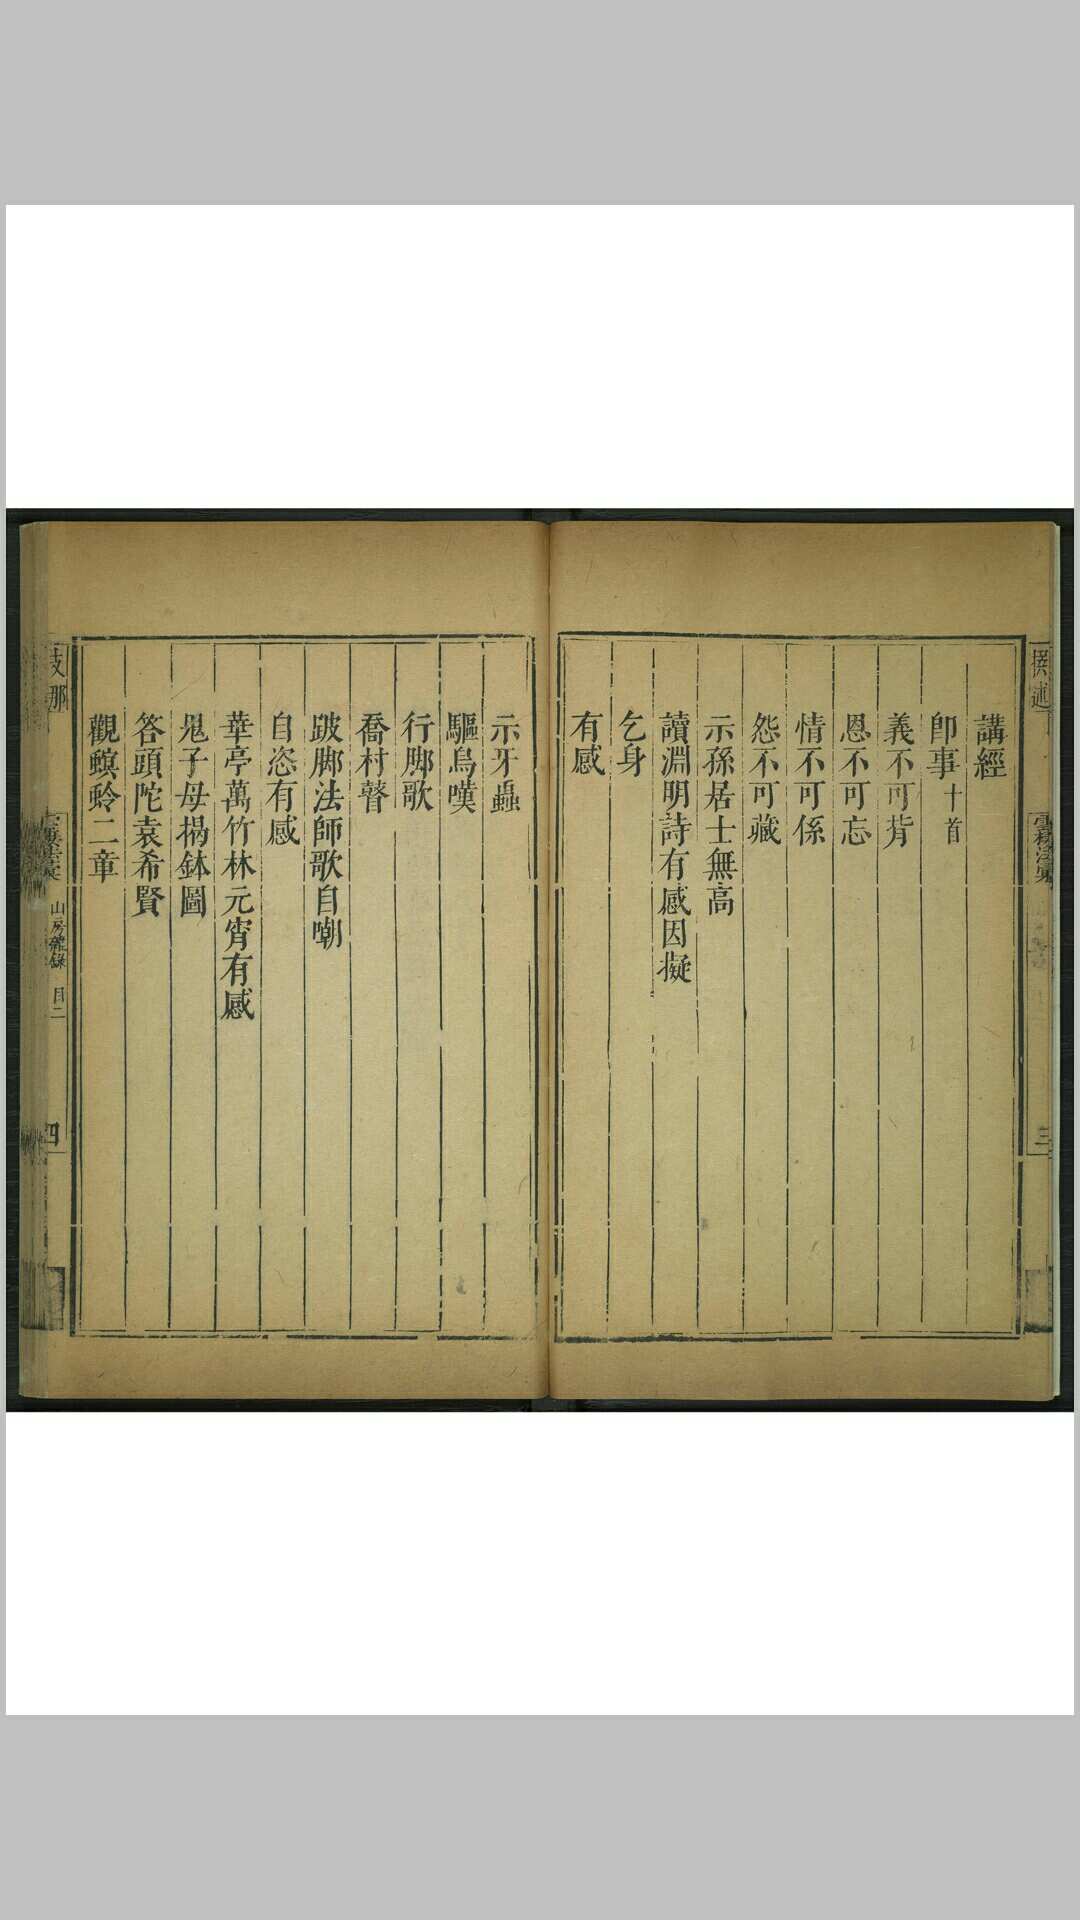 講經
卽事十首
義不可背
恩不可忘
情不可係
怨不可藏
示孫居士無高
讀淵明詩有感因擬
乞身
有感
示牙蟲
驅烏嘆
行脚歌
喬村瞽
跛脚法師歌自嘲
自恣有感
華亭萬竹林元宵有感
鬼子母揭鉢圖
答頭陀袁希賢
觀螟蛉二章
山房雜錄 目二
四
三